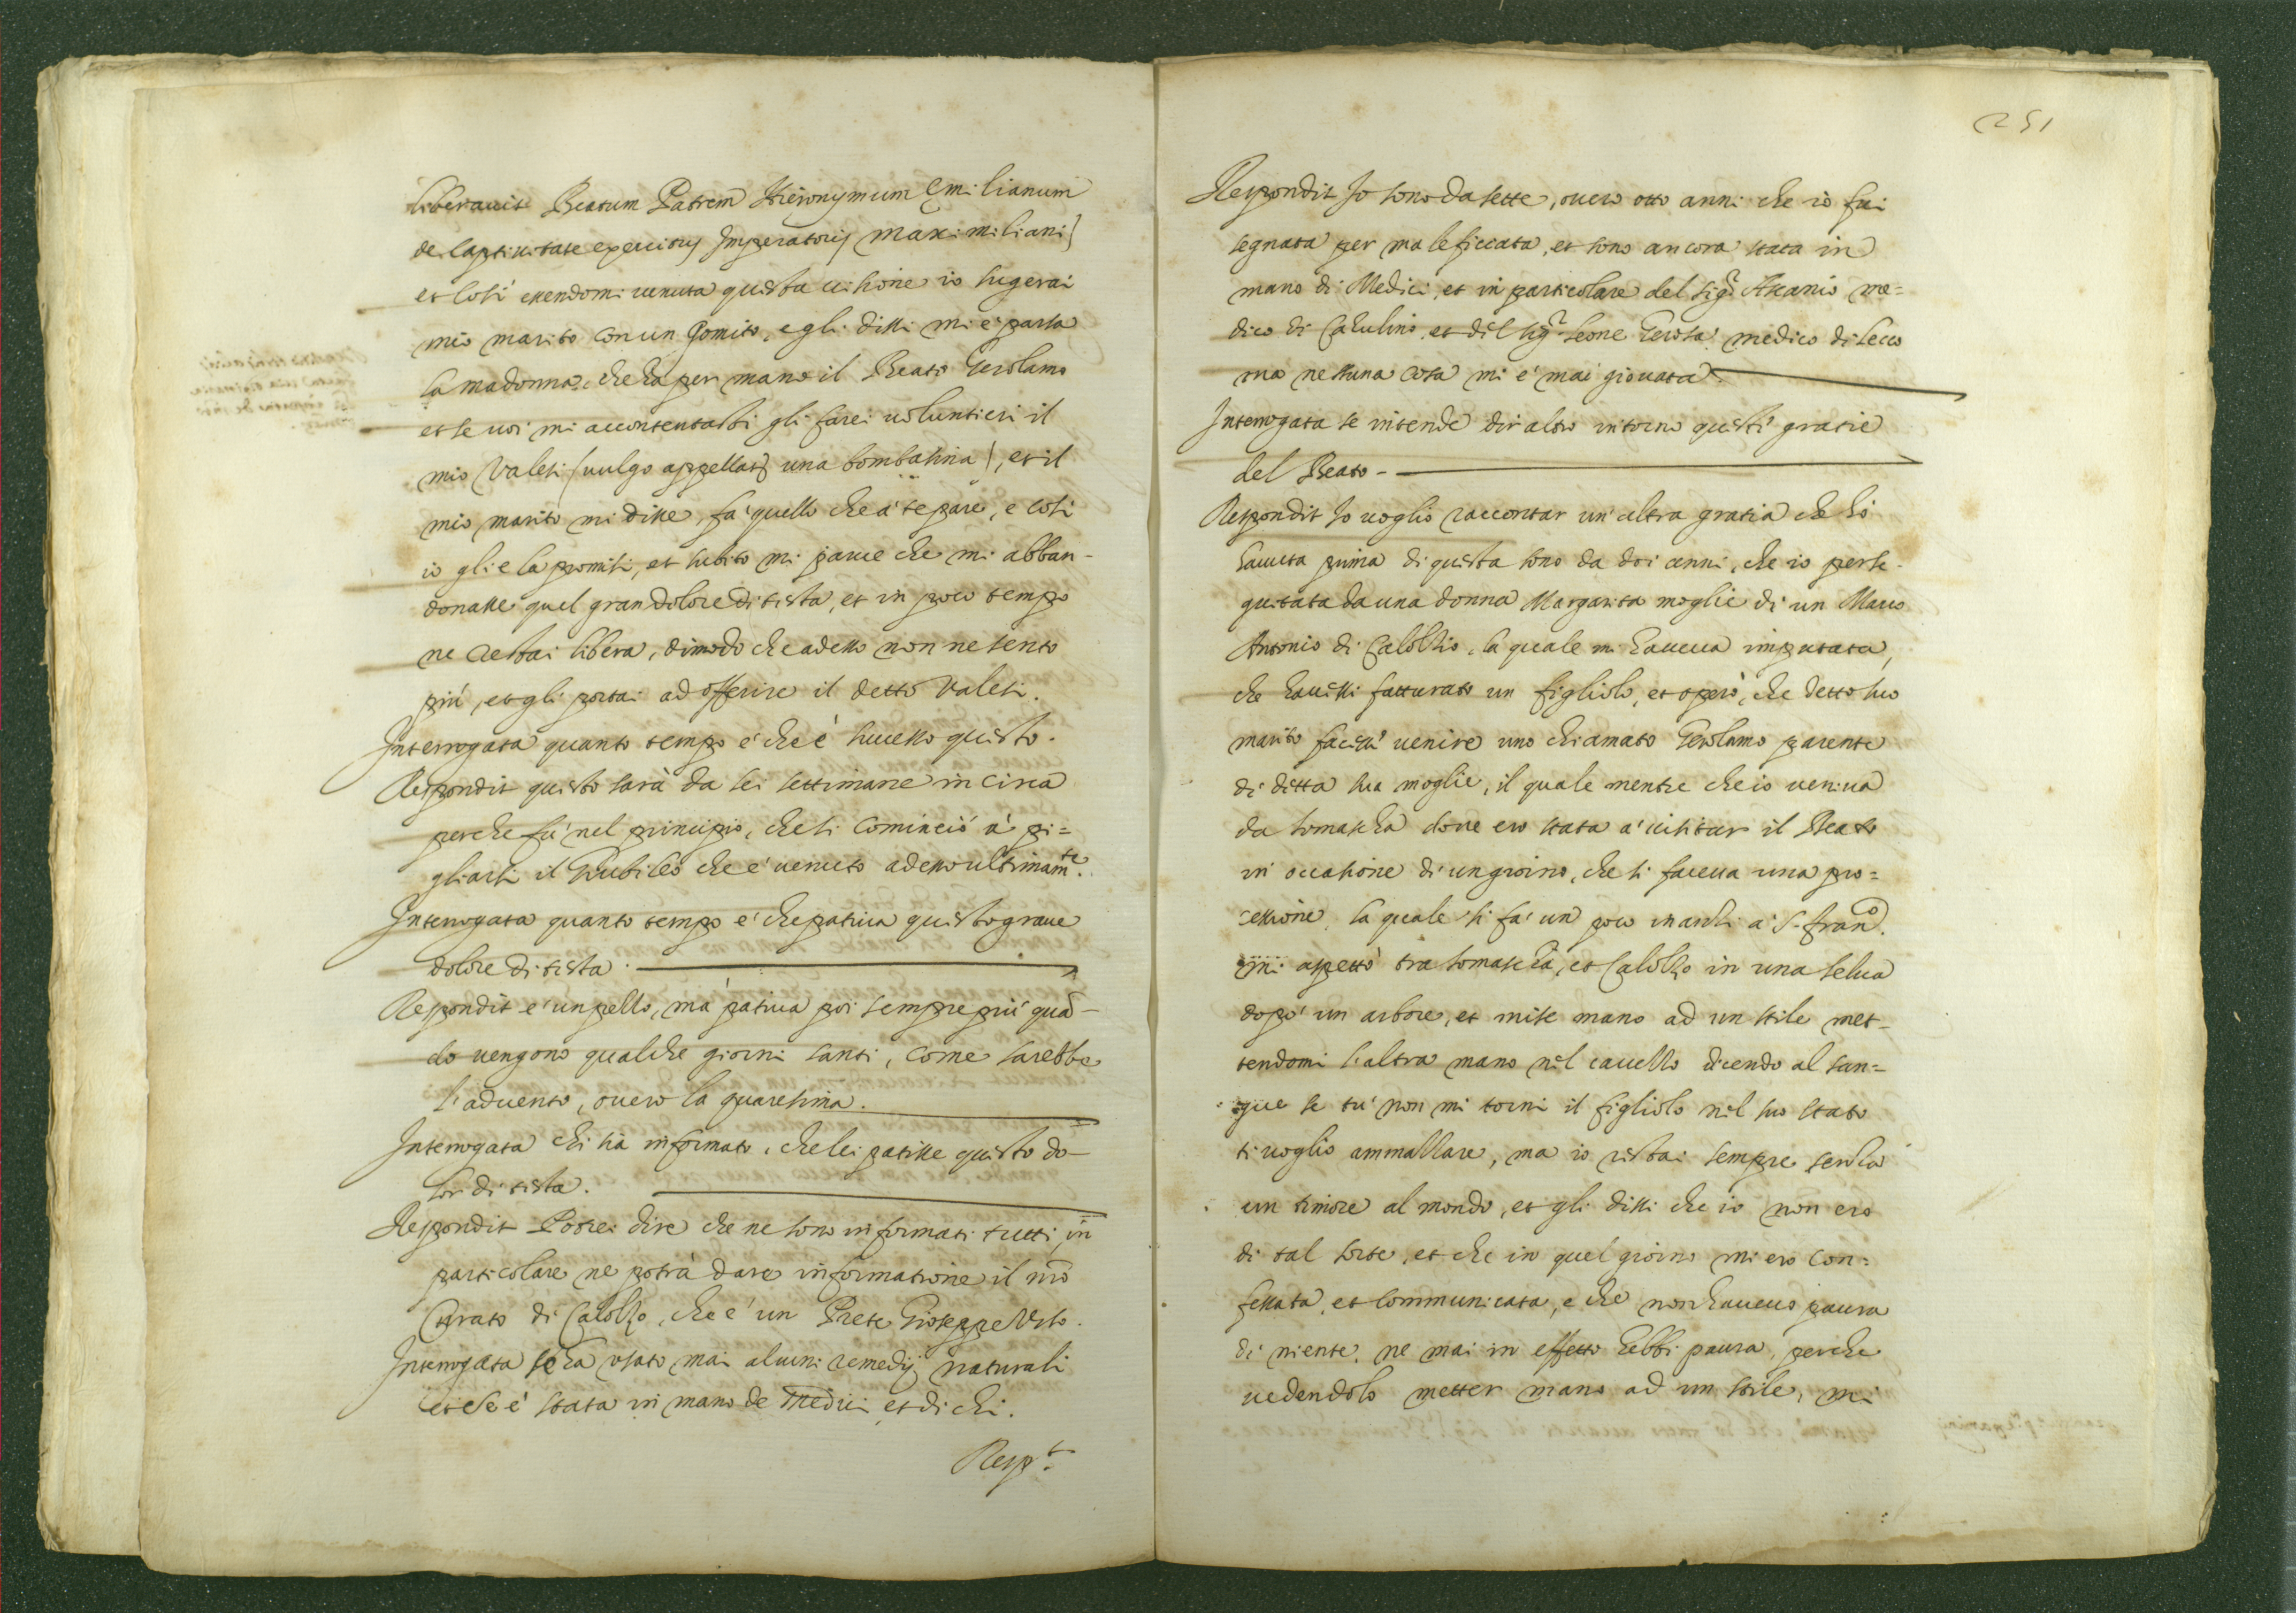 liberauit Beatum Patrem Hieronymum Emilianum
de captiuitate exercitus Imperatoris Maximiliani)
et cosi essendomi venuta questa uisione io sugerai
mio marito con un gomito, e gli dissi mi è parsa
la madonna, che ha per mano il Beato Gerolamo
et se uoi mi accontentassi gli farei uoluntieri il
mio Valesi (uulgo appellat una bombasina), et il
mio marito mi disse, fa quello che a te pare, e cosi
io glie la promisi, et subito mi parue che mi abban-
donasse quel gran dolore di testa, et in poco tempo
ne restai libera, dimodo che adesso non ne sento
più, et gli portai ad offerire il detto Valesi.
Interrogata quanto tempo è che è sucesso questo.
Respondit questo sarà da sei settimane in circa
perche fù nel principio, che si cominciò à pi=
gliarsi il Giubileo che è venuto adesso ultimamte.
Interrogata quanto tempo è che patiua questo graue
dolore di testa.
Respondit è un pello, mà patiua poi sempre più quā-
do uengono qualche giorni santi, come sarebbe
l'aduento, ouero la quaresima.
Interrogata chi hà informato, che lei patisse questo do-
lor di testa.
Respondit Potrei dire che ne sono informati tutti, in
particolare ne potrà dare informatione il nrō
Curato di Calolzo, che è un Prete Gioseppe
Interrogata se ha usato mai alcuni remedij naturali
et se è stata in mano de Medici et di chi.
Respt.
251
Respondit Io sono da sette, ouero otto anni che io fui
segnata per maleficcata, et sono ancora stata in
mano di Medici, et in particolare del sigr Ascanio me=
dico di Cabulino, et del sigr Leone Gerosa medico di Lecco
ma nessuna cosa mi è mai giouata.
Interrogata se intende dir altro intorno questi gratie
del Beato -
Respondit Io uoglio raccontar un'altra gratia che hò
hauuta prima di questa sono da doi anni, che io perse-
guitata da una donna Margarita moglie di un Marco
Antonio di Calolzio, la quale m'haueua imputata,
che hauessi fatturato un figliolo, et operò, che detto suo
marito facessi venire uno chiamato Gerolamo parente
di detta sua moglie, il quale mentre che io ueniua
da Somascha doue ero stata à uisitar il Beato
in occasione di un giorno, che si faceua una pro=
cessione, la quale si fa un poco inanzi à S. Franco.
mi aspettò tra Somascha, et Calolzo in una selua
dopò un arbore, et mise mano ad un stile met-
tendomi l'altra mano nel cauello dicendo al san=
gue se tu non mi torni il figliolo nel suo stato
ti uoglio ammazzare, ma io restai sempre senza
un timore al mondo, et gli dissi che io non ero
di tal sorte, et che in quel giorno mi ero con=
fessata, et communicata, e che non haueuo paura
di niente, ne mai in effetto hebbi paura, perche
uedendolo metter mano ad un stile, mi